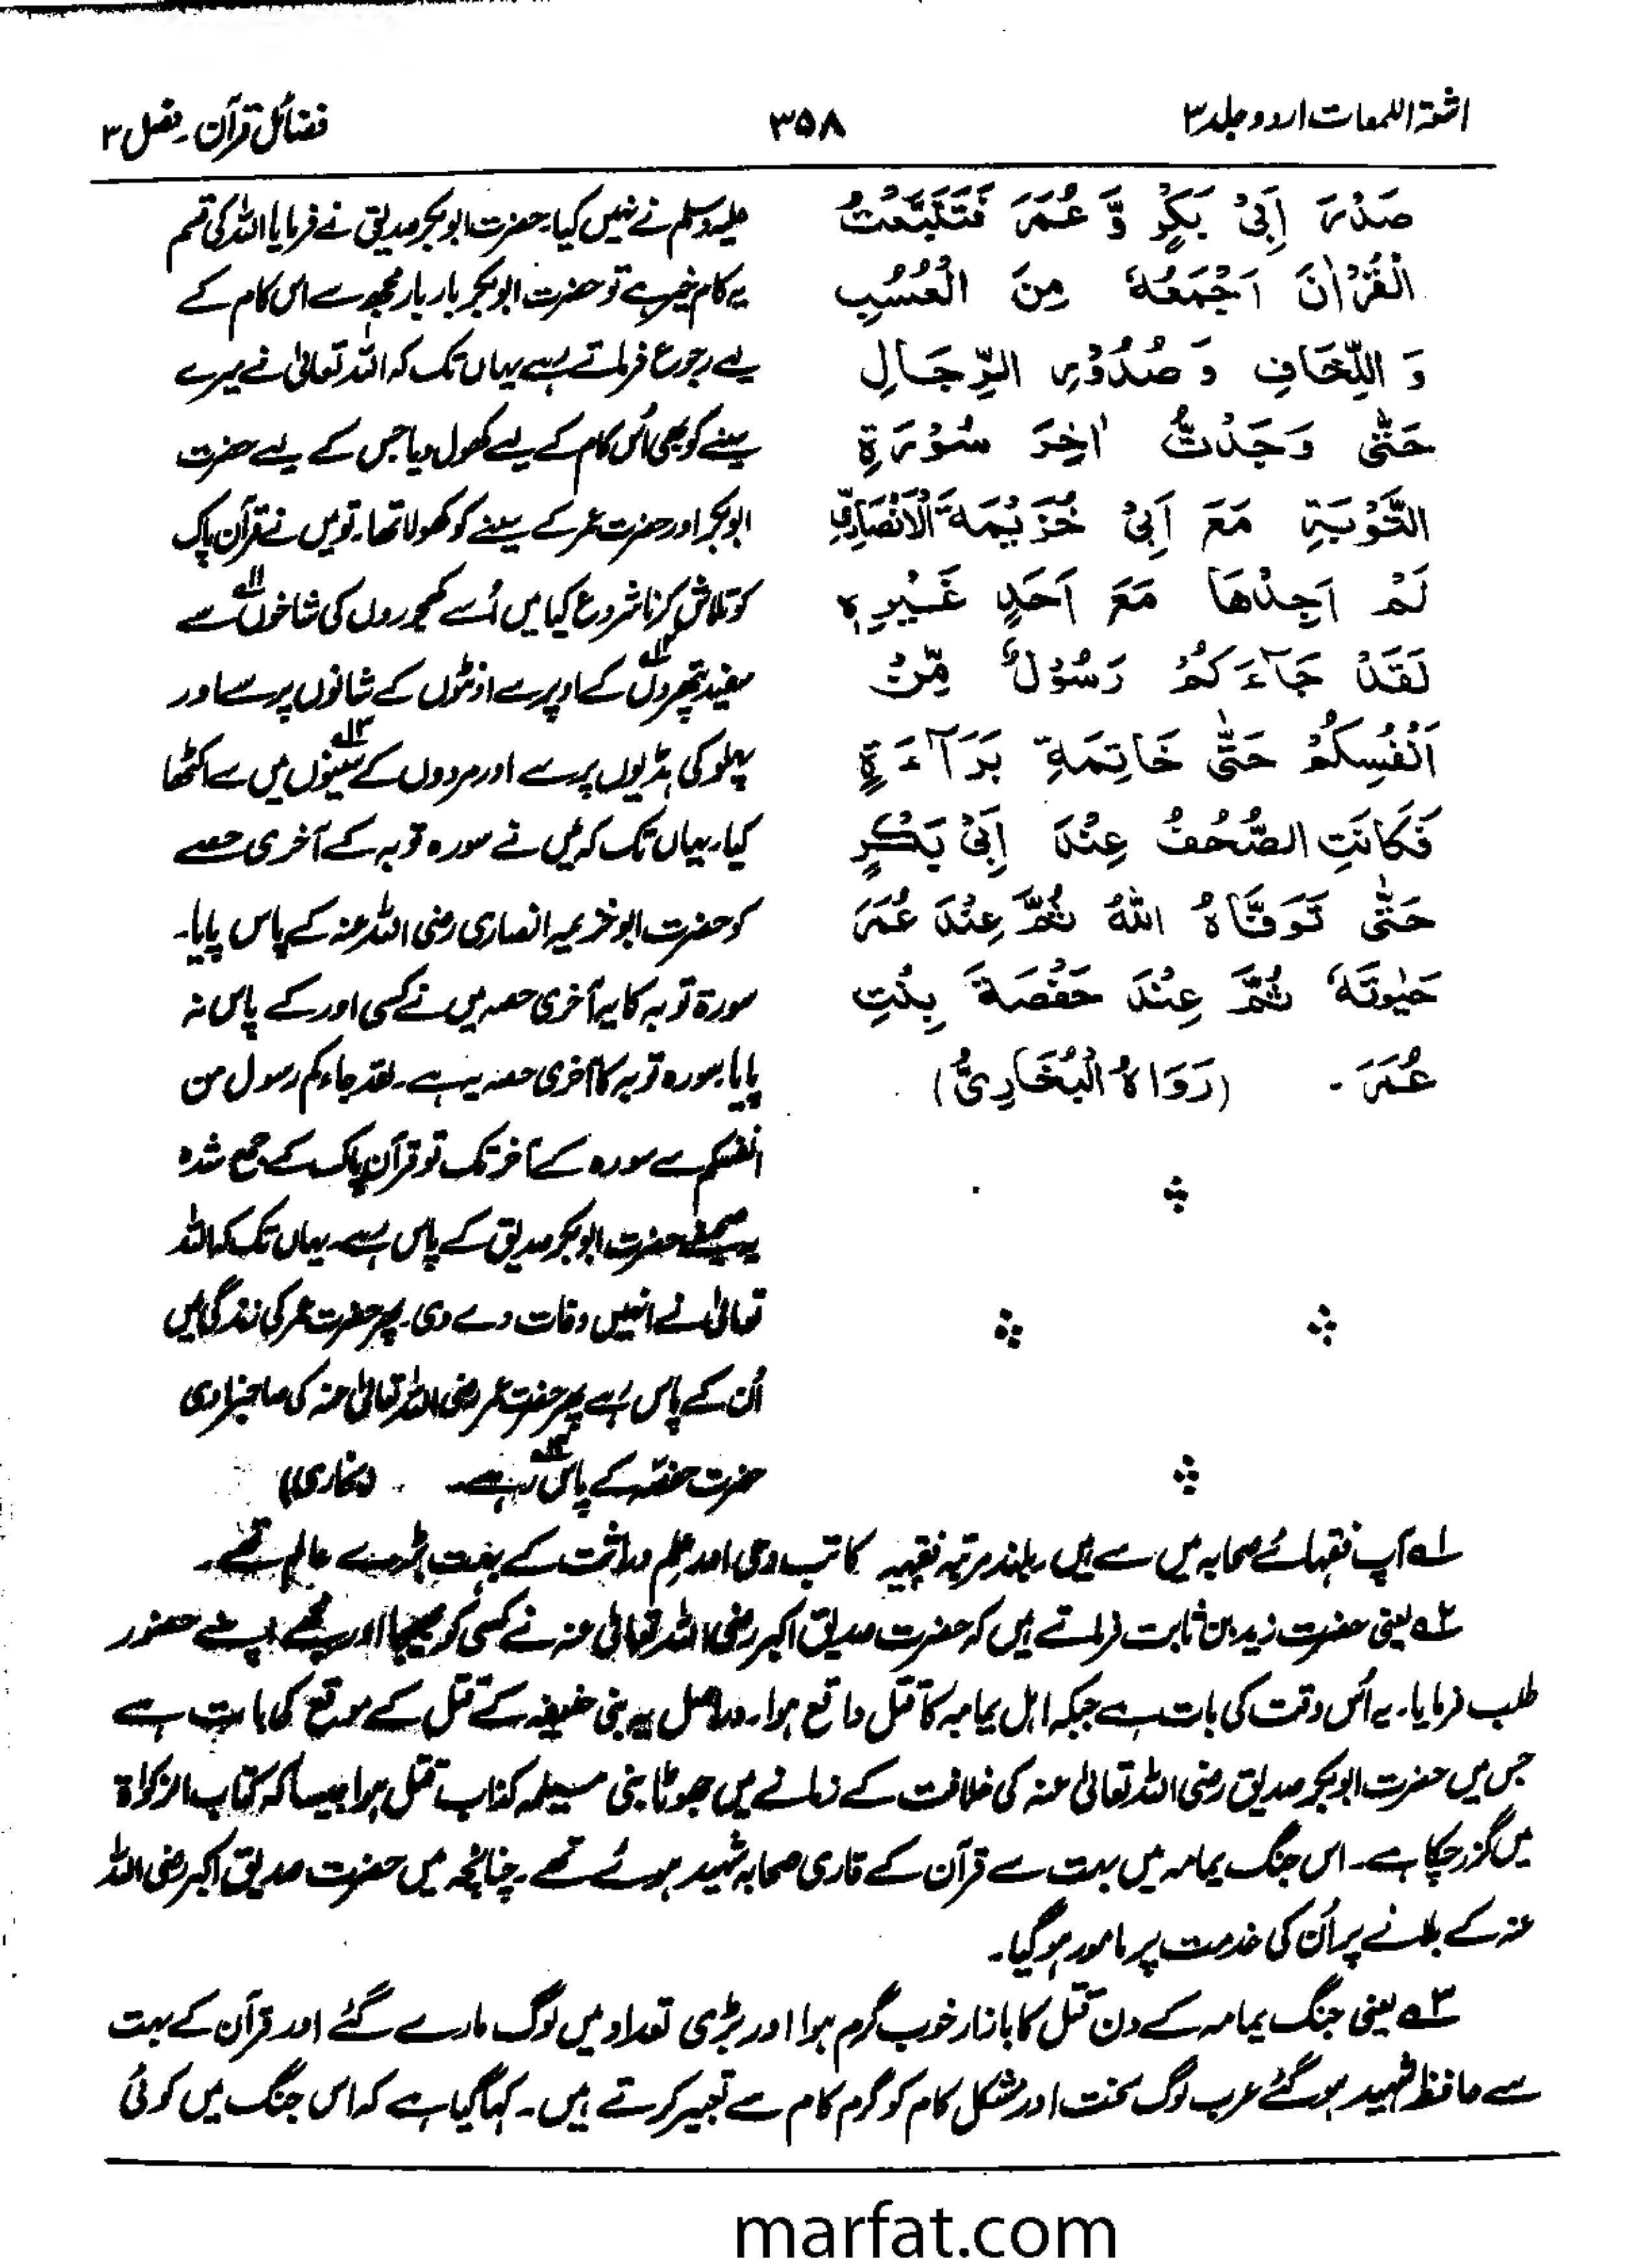 اشعۃ اللمعات اردو جلد ۳
۳۵۸
فضائل قرآن ۔ فصل ۳
صَدْرَ اَبِیْ بَکْرٍ وَّ عُمَرَ فَتَتَبَّعْتُ
الْقُرْاٰنَ اَجْمَعُهٗ مِنَ الْعُسُبِ
وَ اللِّخَافِ وَ صُدُوْرِ الرِّجَالِ
حَتّٰی وَجَدْتُّ اٰخِرَ سُوْرَةِ
التَّوْبَةِ مَعَ اَبِیْ خُزَيْمَةَ الْاَنْصَارِيِّ
لَمْ اَجِدْهَا مَعَ اَحَدٍ غَيْرِهٖ
لَقَدْ جَآءَكُمْ رَسُوْلٌ مِّنْ
اَنْفُسِكُمْ حَتّٰی خَاتِمَةِ بَرَآءَةٍ
فَكَانَتِ الصُّحُفُ عِنْدَ اَبِیْ بَكْرٍ
حَتّٰی تَوَفَّاهُ اللهُ ثُمَّ عِنْدَ عُمَرَ
حَيٰوتَهٗ ثُمَّ عِنْدَ حَفْصَةَ بِنْتِ
عُمَرَ ۔ (رَوَاهُ الْبُخَارِيُّ)
علیہ وسلم نے نہیں کیا۔ حضرت ابوبکر صدیق نے فرمایا اللہ کی قسم
یہ کام خیر ہے تو حضرت ابوبکر بار بار مجھ سے اس کام کے
لیے رجوع فرماتے رہے یہاں تک کہ اللہ تعالیٰ نے میرے
سینے کو بھی اُس کام کے لیے کھول دیا جس کے لیے حضرت
ابوبکر اور حضرت عمر کے سینے کو کھولا تھا۔ تو میں نے قرآن پاک
کو تلاش کرنا شروع کیا میں اُسے کھجوروں کی شاخوں ۱۱؎ سے
سفید پتھروں ۱۲؎ کے اوپر سے اونٹوں کے شانوں پر سے اور
پہلو کی ہڈیوں پر سے اور مردوں کے سینوں ۱۳؎ میں سے اکٹھا
کیا۔ یہاں تک کہ میں نے سورہ توبہ کے آخری حصے
کو حضرت ابو خزیمہ انصاری رضی اللہ عنہ کے پاس پایا۔
سورۃ توبہ کا یہ آخری حصہ میں نے کسی اور کے پاس نہ
پایا۔ سورہ توبہ کا آخری حصہ یہ ہے۔ لقد جاءکم رسول من
انفسکم سے سورہ کے آخر تک تو قرآن پاک کے جمع شدہ
یہ صحیفے حضرت ابوبکر صدیق کے پاس رہے۔ یہاں تک کہ اللہ
تعالیٰ نے انہیں وفات دے دی۔ پھر حضرت عمر کی زندگی میں
اُن کے پاس رہے پھر حضرت عمر رضی اللہ تعالیٰ عنہ کی صاحبزادی
حضرت حفصہ کے پاس ۱۴؎ رہے۔ (بخاری)
۱؎ آپ فقہائے صحابہ میں سے ہیں۔ بلند مرتبہ فقیہہ کاتب وحی اور علم وراثت کے بہت بڑے عالم تھے۔
۲؎ یعنی حضرت زید بن ثابت فرماتے ہیں کہ حضرت صدیق اکبر رضی اللہ تعالیٰ عنہ نے کسی کو بھیجا اور مجھے اپنے حضور
طلب فرمایا۔ یہ اُس وقت کی بات ہے جبکہ اہل یمامہ کا قتل واقع ہوا۔ دراصل یہ بنی حنیفہ کے قتل کے موقع کی بات ہے
جس میں حضرت ابوبکر صدیق رضی اللہ تعالیٰ عنہ کی خلافت کے زمانے میں جھوٹا نبی مسیلمہ کذاب قتل ہوا جیسا کہ کتاب الزکواۃ
میں گزر چکا ہے۔ اس جنگ یمامہ میں بہت سے قرآن کے قاری صحابہ شہید ہوئے تھے۔ چنانچہ میں حضرت صدیق اکبر رضی اللہ
عنہ کے بلانے پر اُن کی خدمت پر مامور ہو گیا۔
۳؎ یعنی جنگ یمامہ کے دن قتل کا بازار خوب گرم ہوا اور بڑی تعداد میں لوگ مارے گئے اور قرآن کے بہت
سے حافظ شہید ہو گئے عرب لوگ سخت اور مشکل کام کو گرم کام سے تعبیر کرتے ہیں۔ کہا گیا ہے کہ اس جنگ میں کوئی
marfat.com